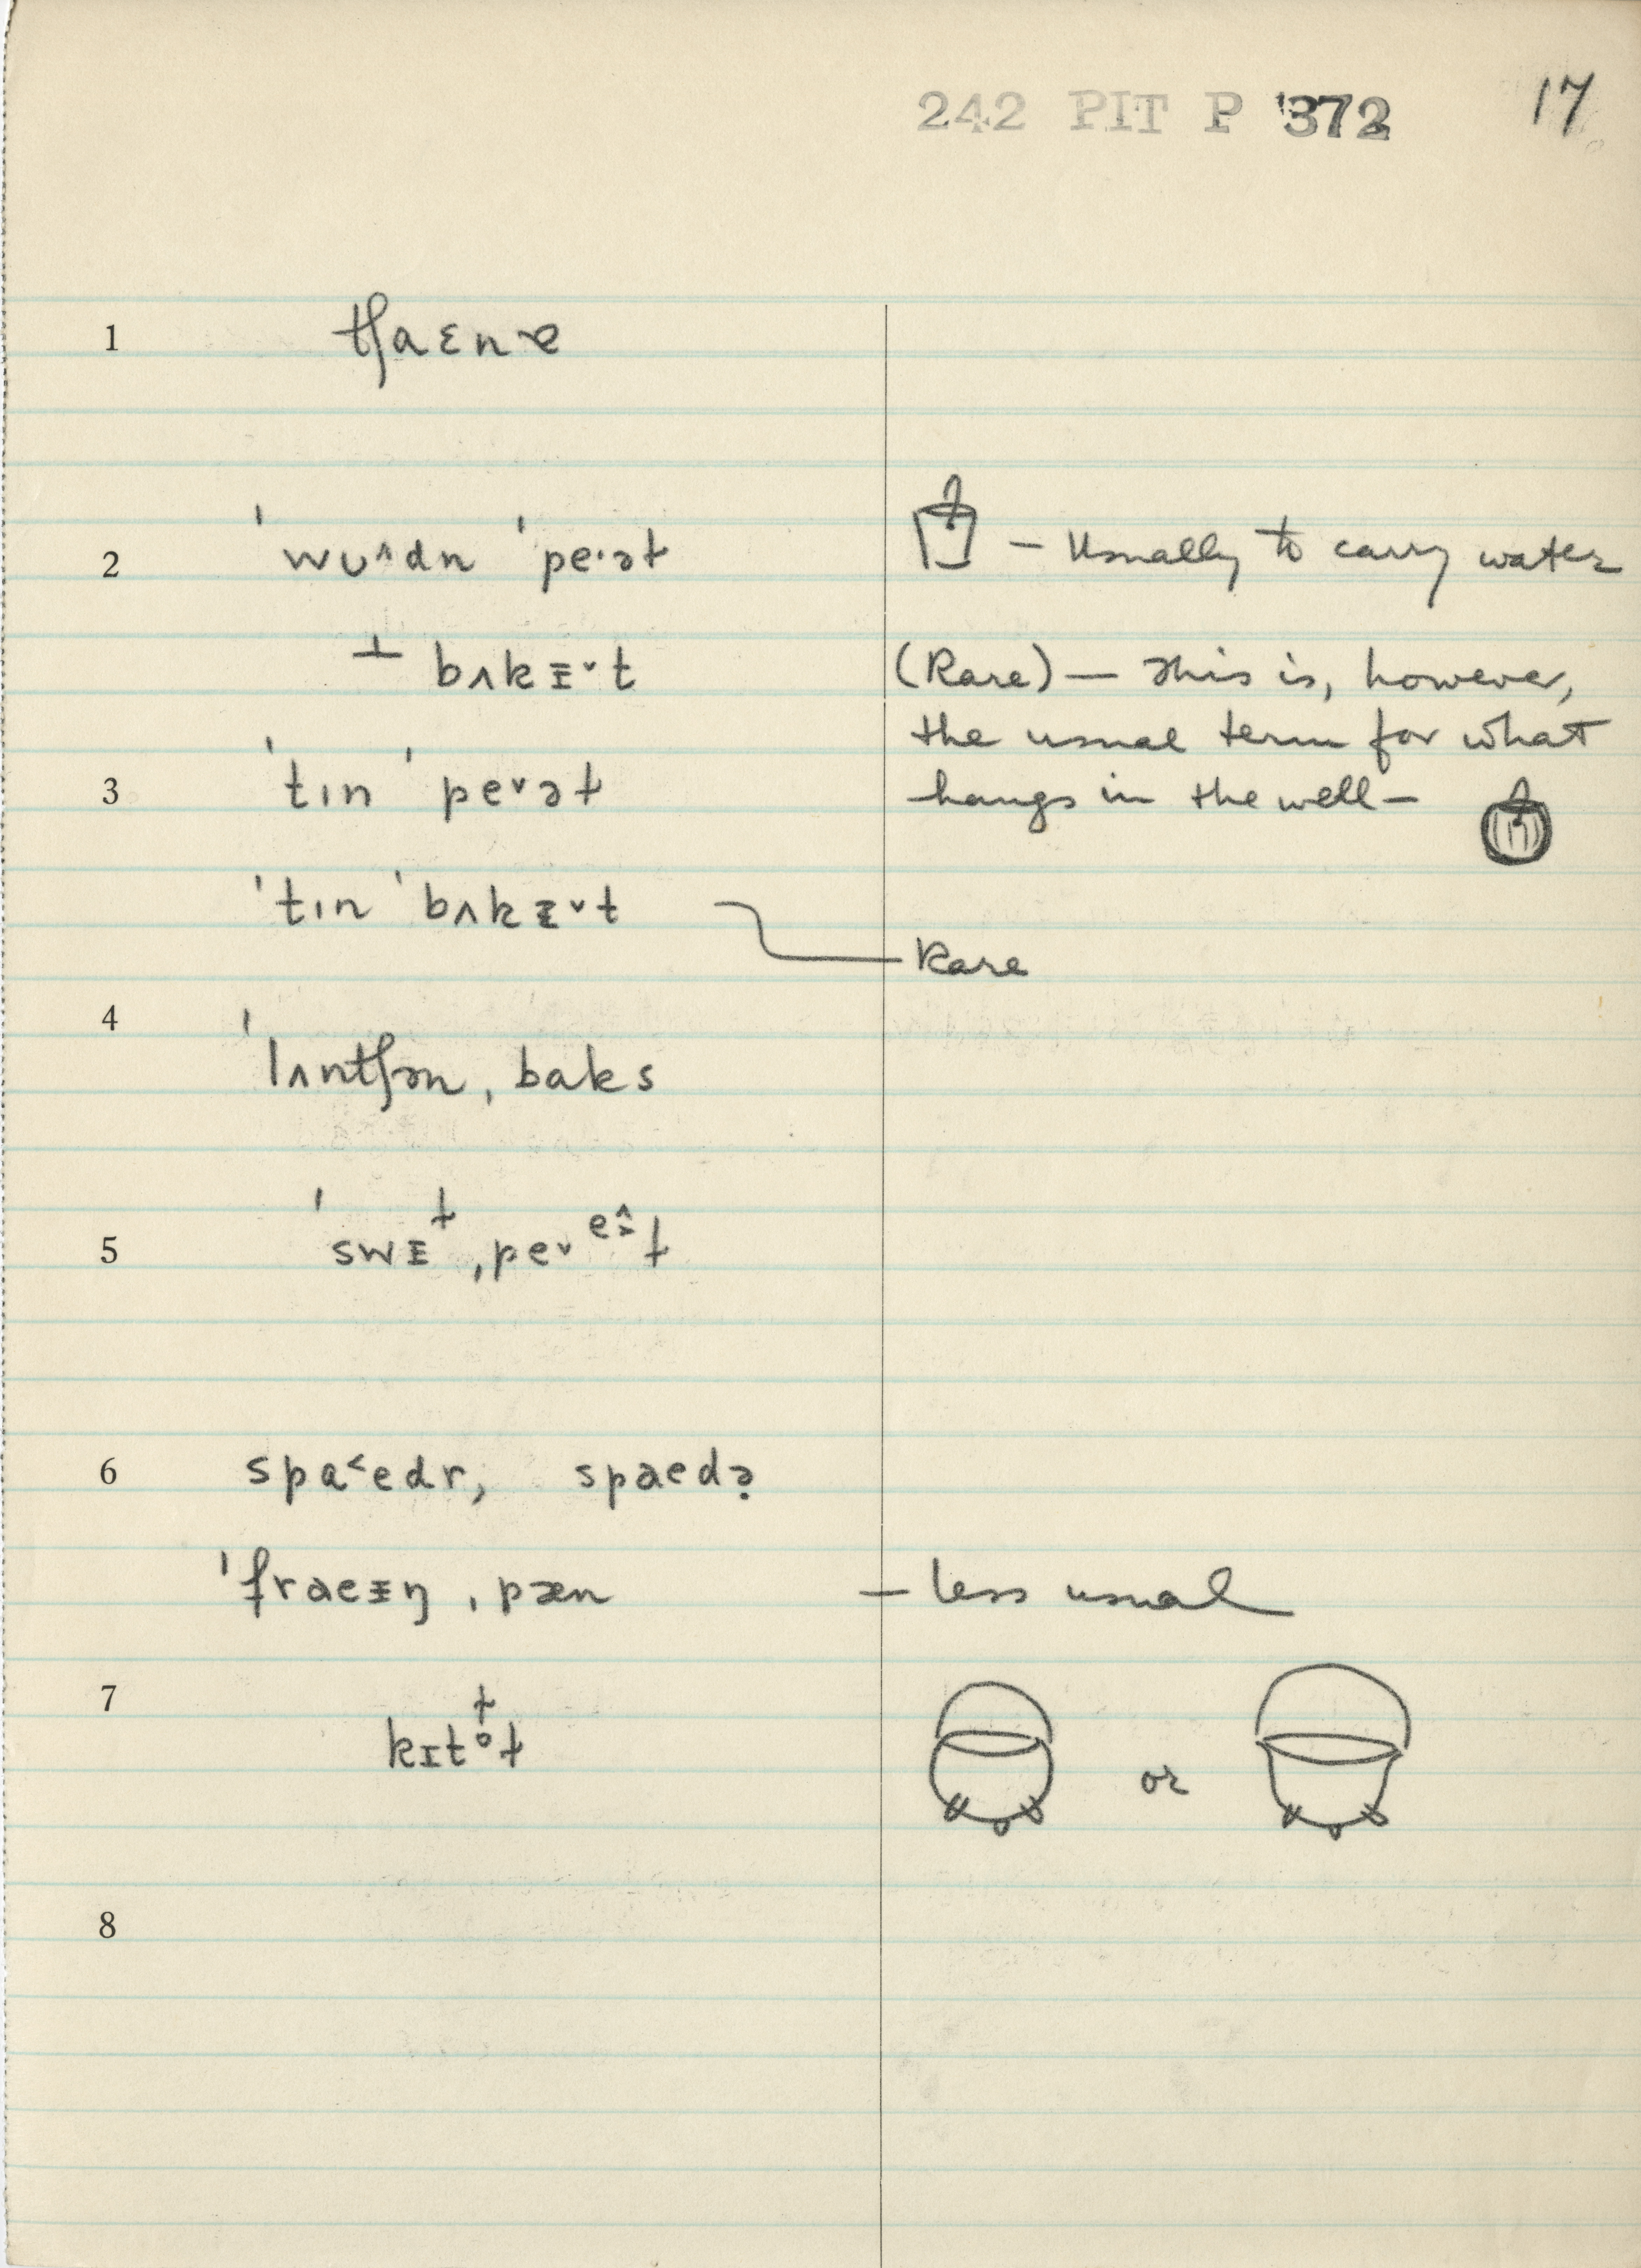 242 PIT P 372 17
1 tʃaɛnɚ
2 ˈwᴜ^dn ˈpe·əɫ – Usually to carry water
⊥ bʌkɪ̵ˇt (Rare) – This is, however,
the usual term for what
3 ˈtɪn ˈpeˇəɫ hangs in the well –
ˈtɪn ˈbʌkɪ̵ˇt Rare
4
ˈlʌntʃən ˌbaks
5 ˈswɪ̵ɫ ˌpeˇᵉɪ̵^ɫ
6 spa˂edr, spaedə̣
ˈfraeɪ̵ŋ ˌpæn – less usual
7
kɪtᵒɫ or
8